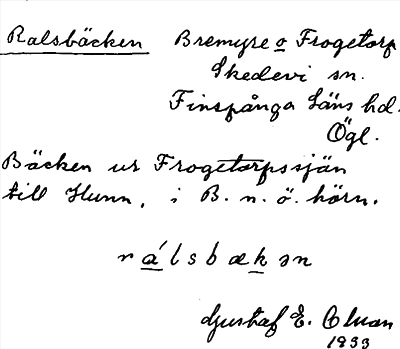 Ralsbäcken Bremyre o Frogetorp
Skedevi sn.
Finspånga Läns hd.
Ögl.
Bäcken ur Frogetorpssjän
till Hunn, i B. n. ö. hörn.
rálsbækən
Gustaf E. Olsson
1933